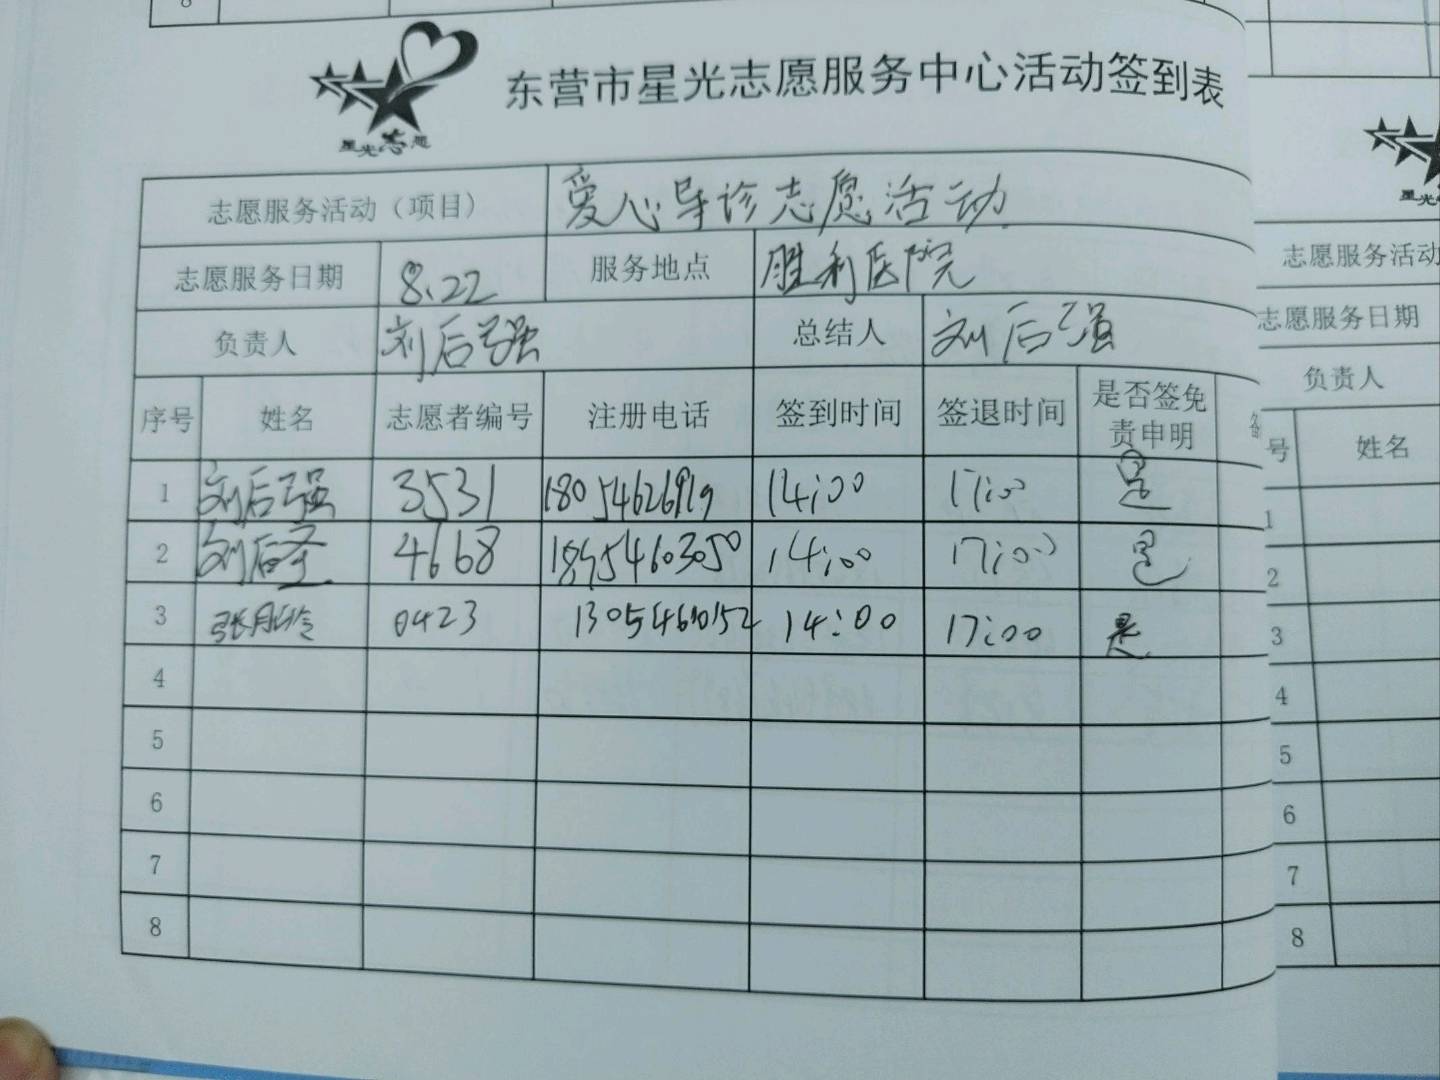 8
星光志愿
东营市星光志愿服务中心活动签到表
志愿服务活动（项目） 爱心导诊志愿活动
志愿服务日期 8.22 服务地点 胜利医院
负责人 刘后强 总结人 刘后强
序号 姓名 志愿者编号 注册电话 签到时间 签退时间 是否签免责申明
1 刘后强 3531 14:00 17:00 是
2 刘后圣 4668 14:00 17:00 是
3 0423 14:00 17:00 是
4
5
6
7
8
志愿服务活动
志愿服务日期
负责人
号 姓名
1
2
3
4
5
6
7
8